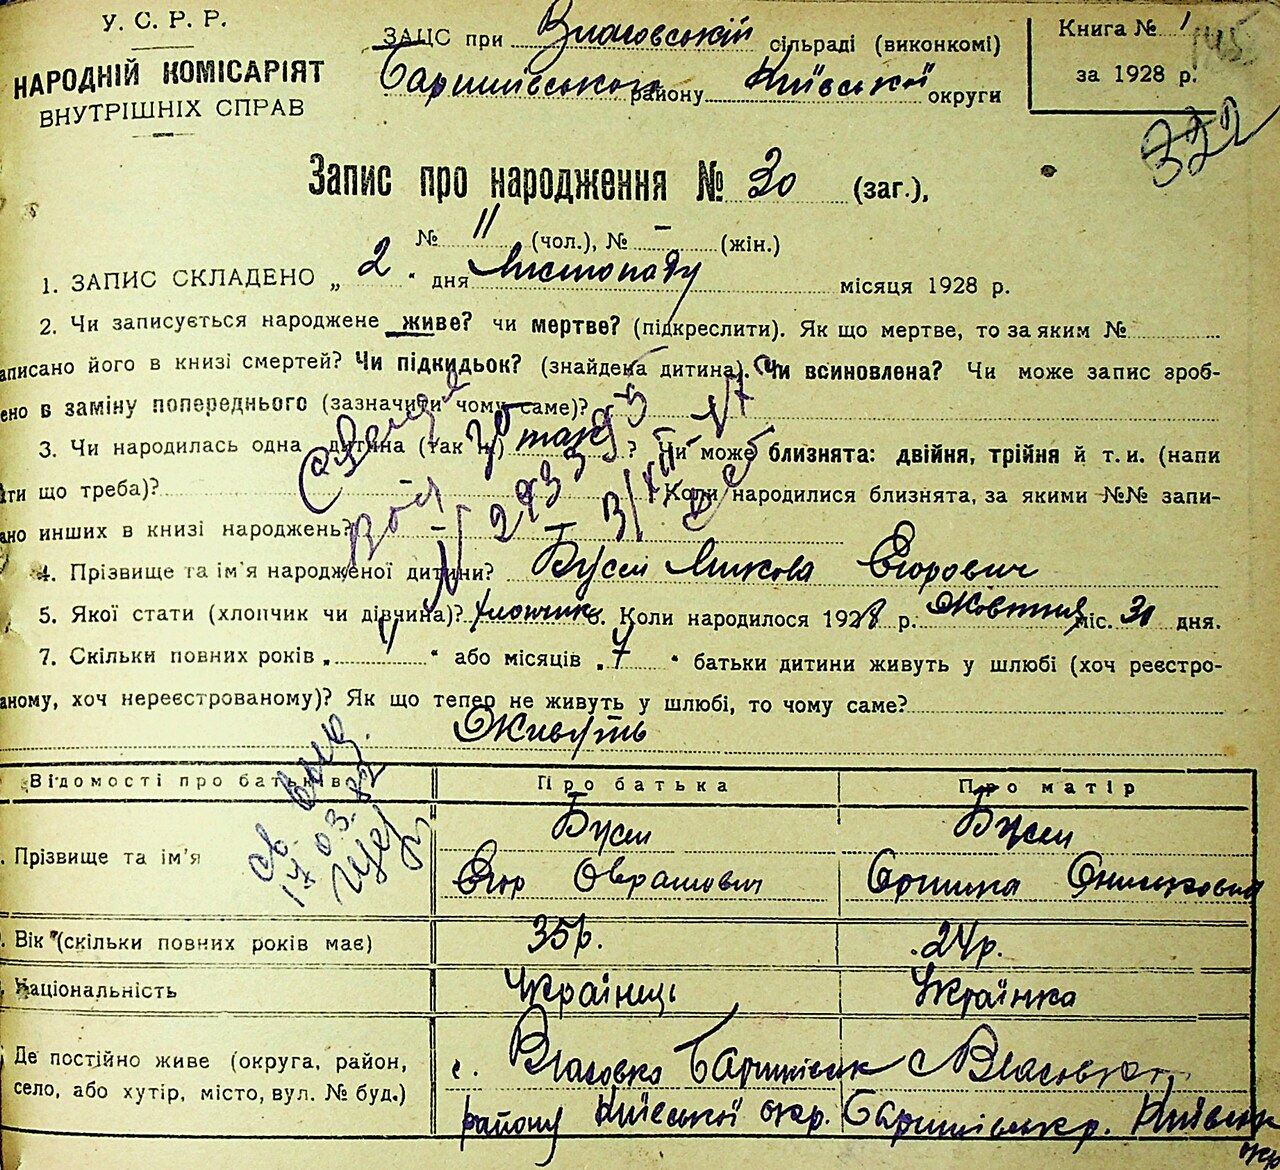 У. С. Р. Р.
НАРОДНІЙ КОМІСАРІЯТ
ВНУТРІШНІХ СПРАВ
ЗАЦС при Власовській сільраді (виконкомі)
Баришівського району Київської округи
Книга № 1
145
за 1928 р.
332
Запис про народження № 30 (заг.),
№ 11 (чол.), № – (жін.)
1. ЗАПИС СКЛАДЕНО „ 2 " дня Листопаду місяця 1928 р.
2. Чи записується народжене живе? чи мертве? (підкреслити). Як що мертве, то за яким №
аписано його в книзі смертей? Чи підкидьок? (знайдена дитина). Чи всиновлена? Чи може запис зроб-
ено в заміну попереднього (зазначити чому саме)?
3. Чи народилась одна дитина (так ні) так? Чи може близнята: двійня, трійня й т. и. (напи
ти що треба)? Коли народилися близнята, за якими №№ запи-
ано инших в книзі народжень?
4. Прізвище та ім'я народженої дитини? Бусел Микола Єгорович
5. Якої статі (хлопчик чи дівчина)? Хлопчик 6. Коли народилося 1928 р. Жовтня міс. 30 дня.
7. Скільки повних років „ " або місяців „ 7 " батьки дитини живуть у шлюбі (хоч реєстро-
аному, хоч нереєстрованому)? Як що тепер не живуть у шлюбі, то чому саме?
Живуть
Відомості про батьків Про батька Про матір
Прізвище та ім'я Бусел Бусел
Єгор
Вік (скільки повних років має) 35 р. 24 р.
Національність Українець Українка
Де постійно живе (округа, район, с. Власовка с. Власовка
село, або хутір, місто, вул. № буд.) району Київської окр.
17.03.82